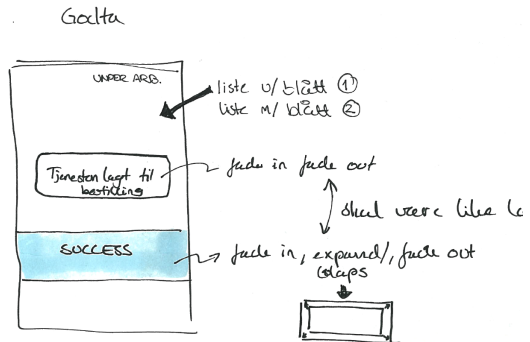 Godta
UNDER ARB.
liste u/ blått ①
liste m/ blått ②
Tjenesten lagt til
bestilling
fade in fade out
skal være like
SUCCESS
fade in, expand/, fade out